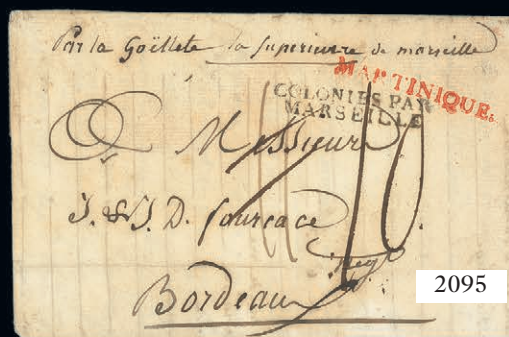 Par la Goëllete la superieure de marseille
MARTINIQUE.
COLONIES PAR
MARSEILLE
Messieurs
J. & J. D.
Bordeaux
2095